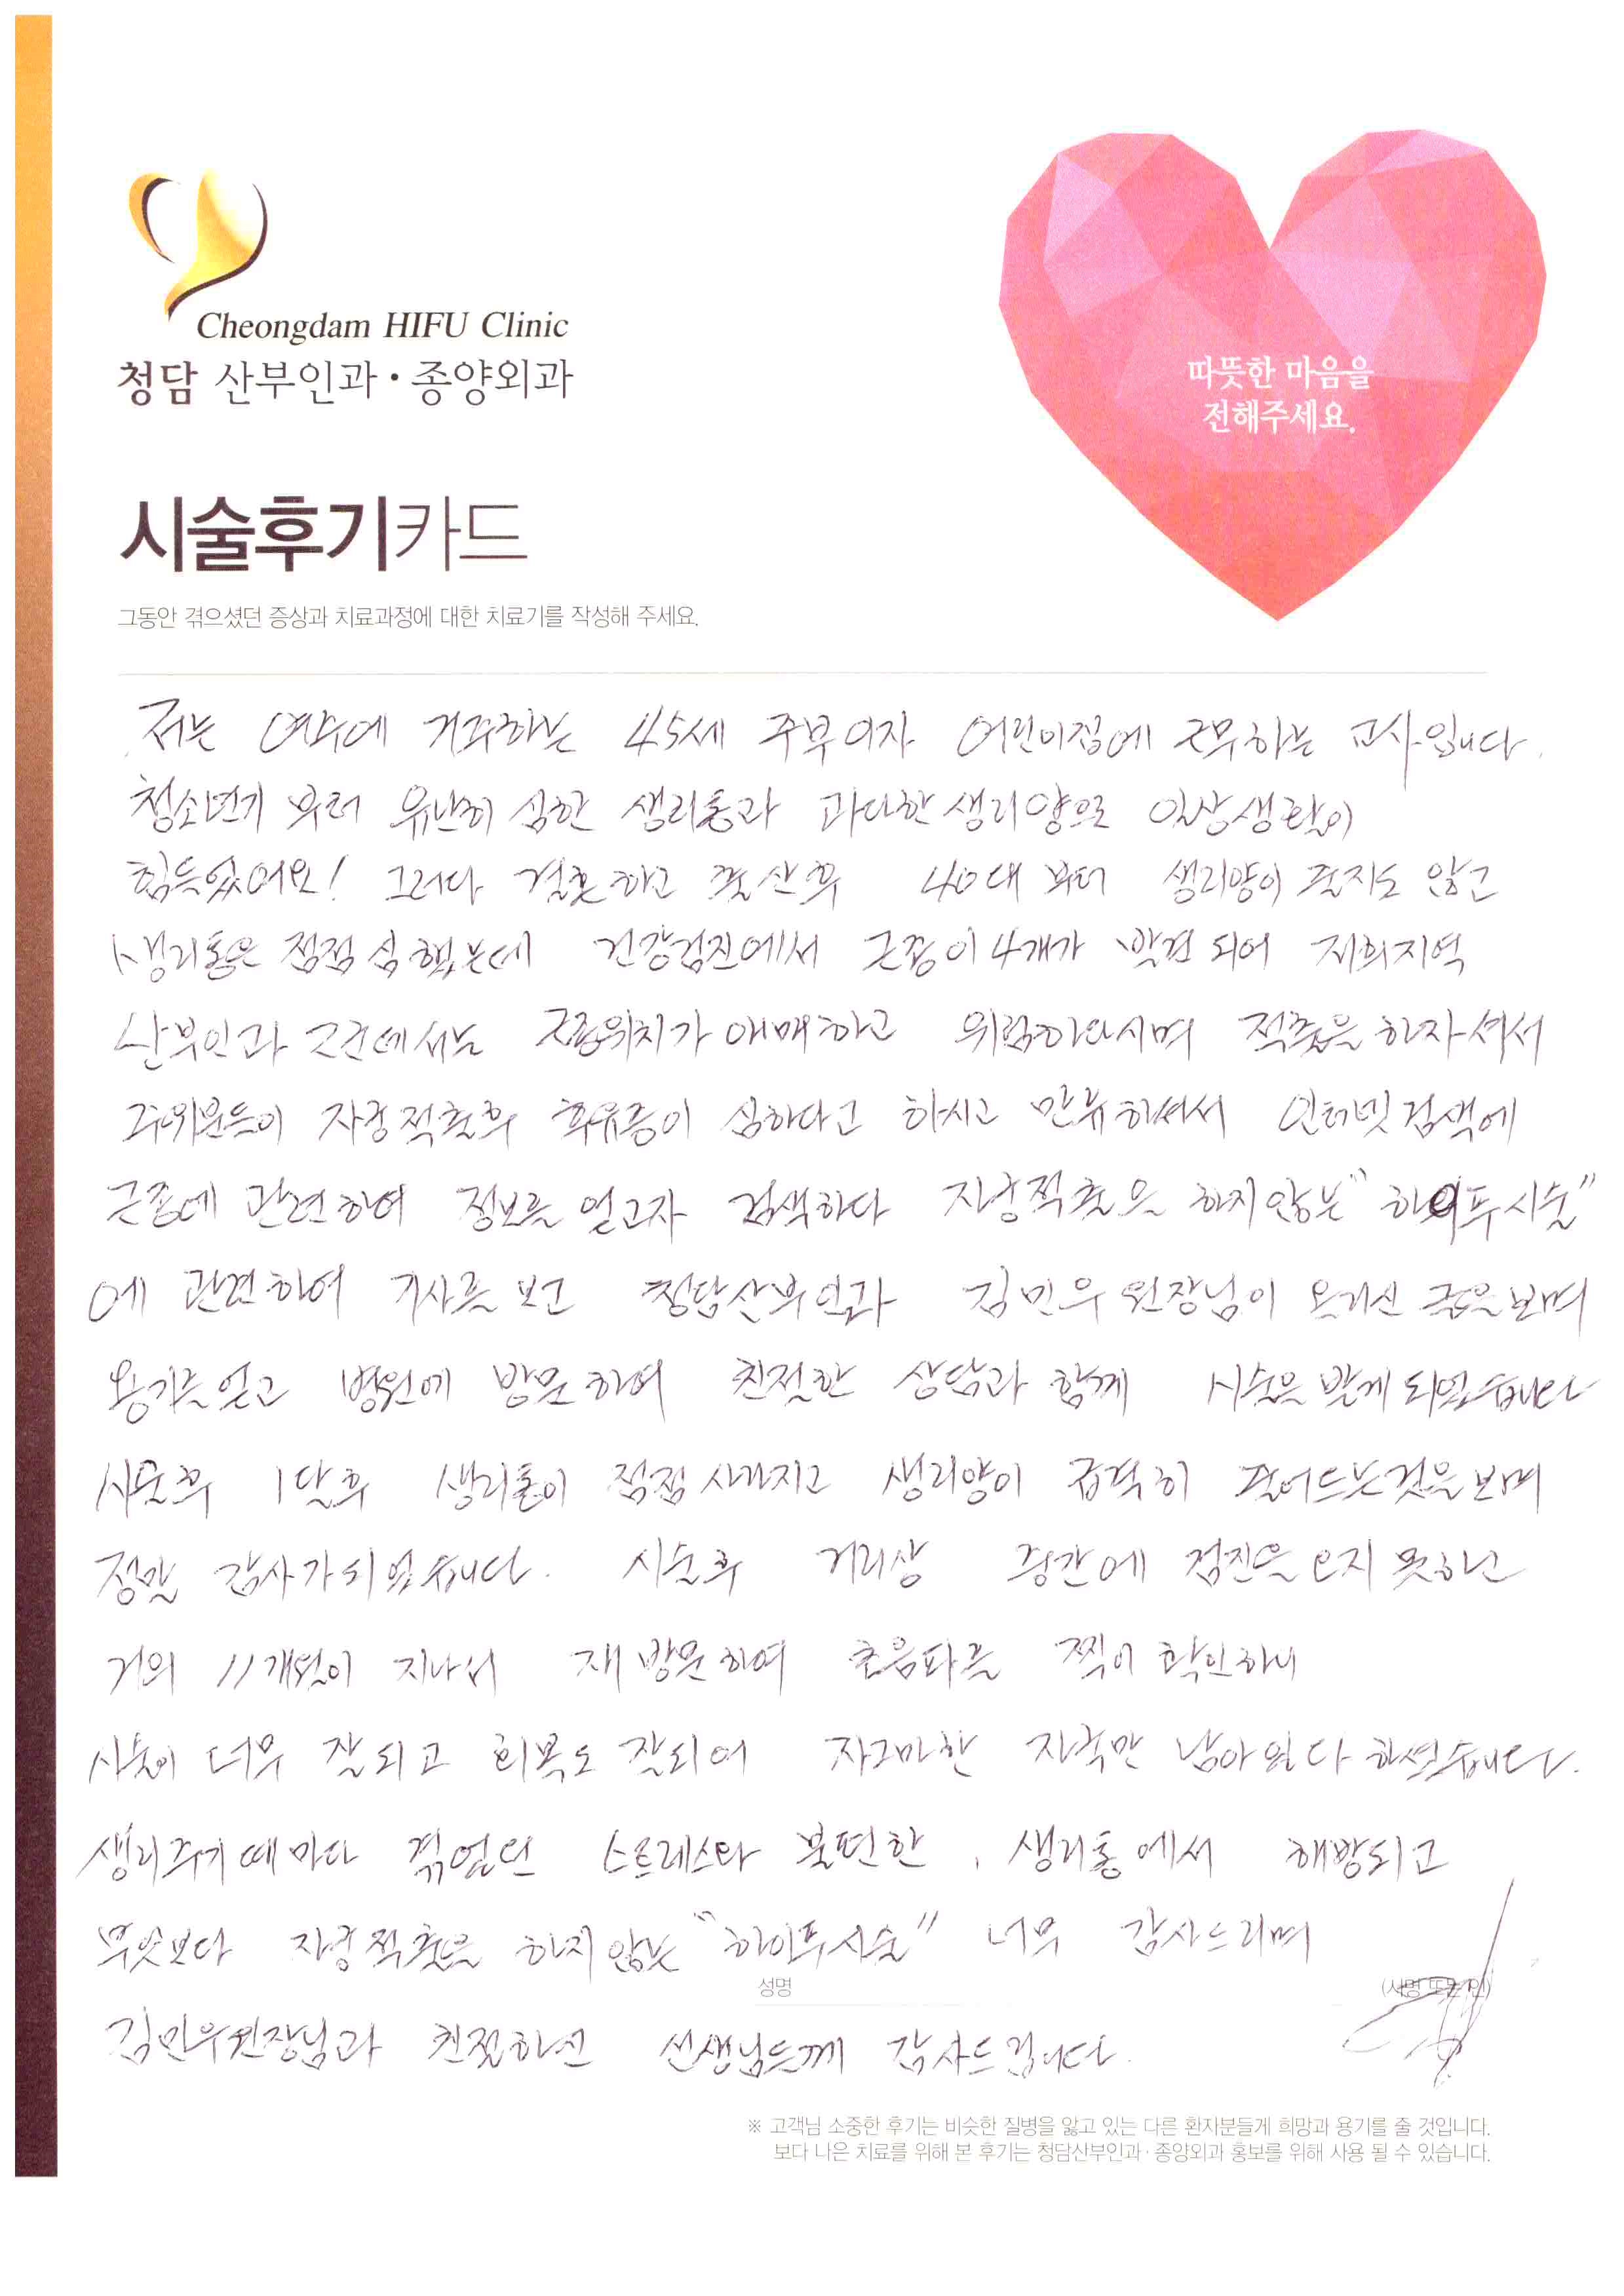 Cheongdam HIFU Clinic
청담 산부인과·종양외과
따뜻한 마음을
전해주세요.
시술후기카드
그동안 겪으셨던 증상과 치료과정에 대한 치료기를 작성해 주세요.
저는 여수에 거주하는 45세 주부이자 어린이집에 근무하는 교사입니다.
청소년기 부터 유난히 심한 생리통과 과다한 생리양으로 일상생활이
힘들었어요! 그러다 결혼하고 출산후 40대 부터 생리양이 줄지도 않고
생리통은 점점 심했는데 건강검진에서 근종이 4개가 발견 되어 저희지역
산부인과 2군데서는 근종위치가 애매하고 위험하다시며 적출을 하자셔서
주위분들이 자궁적출후 후유증이 심하다고 하시고 만류하셔서 인터넷 검색에
근종에 관련하여 정보를 얻고자 검색하다 자궁적출을 하지않는 "하이푸시술"
에 관련하여 기사를 보고 청담산부인과 김민우 원장님이 올리신 글을보며
용기를얻고 병원에 방문하여 친절한 상담과 함께 시술을 받게 되었습니다
시술후 1달후 생리통이 점점 사라지고 생리양이 급격히 줄어드는것을보며
정말 감사가되었습니다. 시술후 거리상 중간에 검진을 오지 못하고
거의 11개월이 지나서 재방문하여 초음파를 찍어 확인하니
시술이 너무 잘되고 회복도 잘되어 자그마한 자국만 남아있다 하셨습니다.
생리주기때마다 겪었던 스트레스와 불편한, 생리통에서 해방되고
무엇보다 자궁적출을 하지않는 "하이푸시술" 너무 감사드리며
성명 (서명 또는 인)
김민우원장님과 친절하신 선생님들께 감사드립니다.
※ 고객님 소중한 후기는 비슷한 질병을 앓고 있는 다른 환자분들게 희망과 용기를 줄 것입니다.
보다 나은 치료를 위해 본 후기는 청담산부인과·종양외과 홍보를 위해 사용 될 수 있습니다.